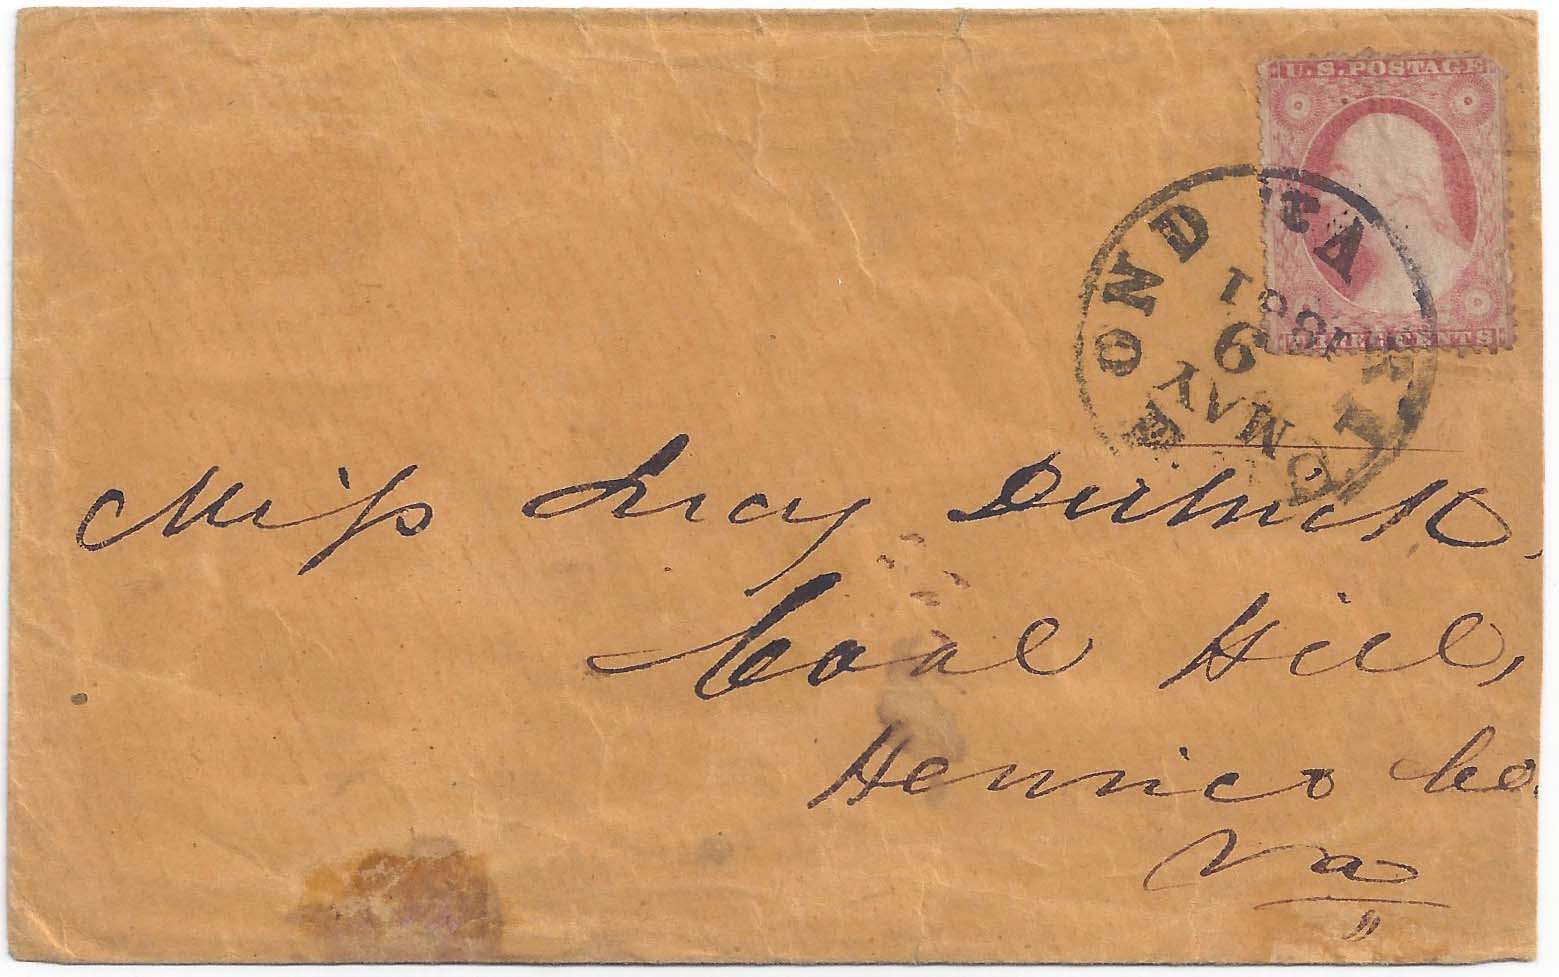 U.S. POSTAGE
THREE CENTS
RICHMOND Va.
MAY
1861
Miss Lucy Deitrick,
Coal Hill,
Henrico Co.
Va